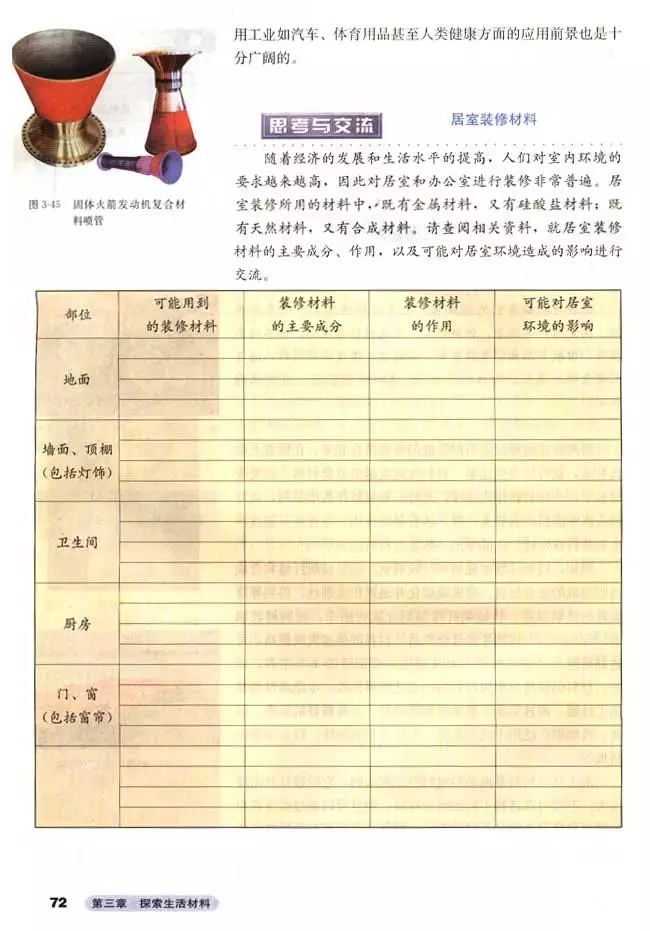 用工业如汽车、体育用品甚至人类健康方面的应用前景也是十
分广阔的。
图 3-45 固体火箭发动机复合材
料喷管
思考与交流
居室装修材料
随着经济的发展和生活水平的提高，人们对室内环境的
要求越来越高，因此对居室和办公室进行装修非常普遍。居
室装修所用的材料中，既有金属材料，又有硅酸盐材料；既
有天然材料，又有合成材料。请查阅相关资料，就居室装修
材料的主要成分、作用，以及可能对居室环境造成的影响进行
交流。
部位
可能用到
的装修材料
装修材料
的主要成分
装修材料
的作用
可能对居室
环境的影响
地面
墙面、顶棚
(包括灯饰)
卫生间
厨房
门、窗
(包括窗帘)
72 第三章 探索生活材料